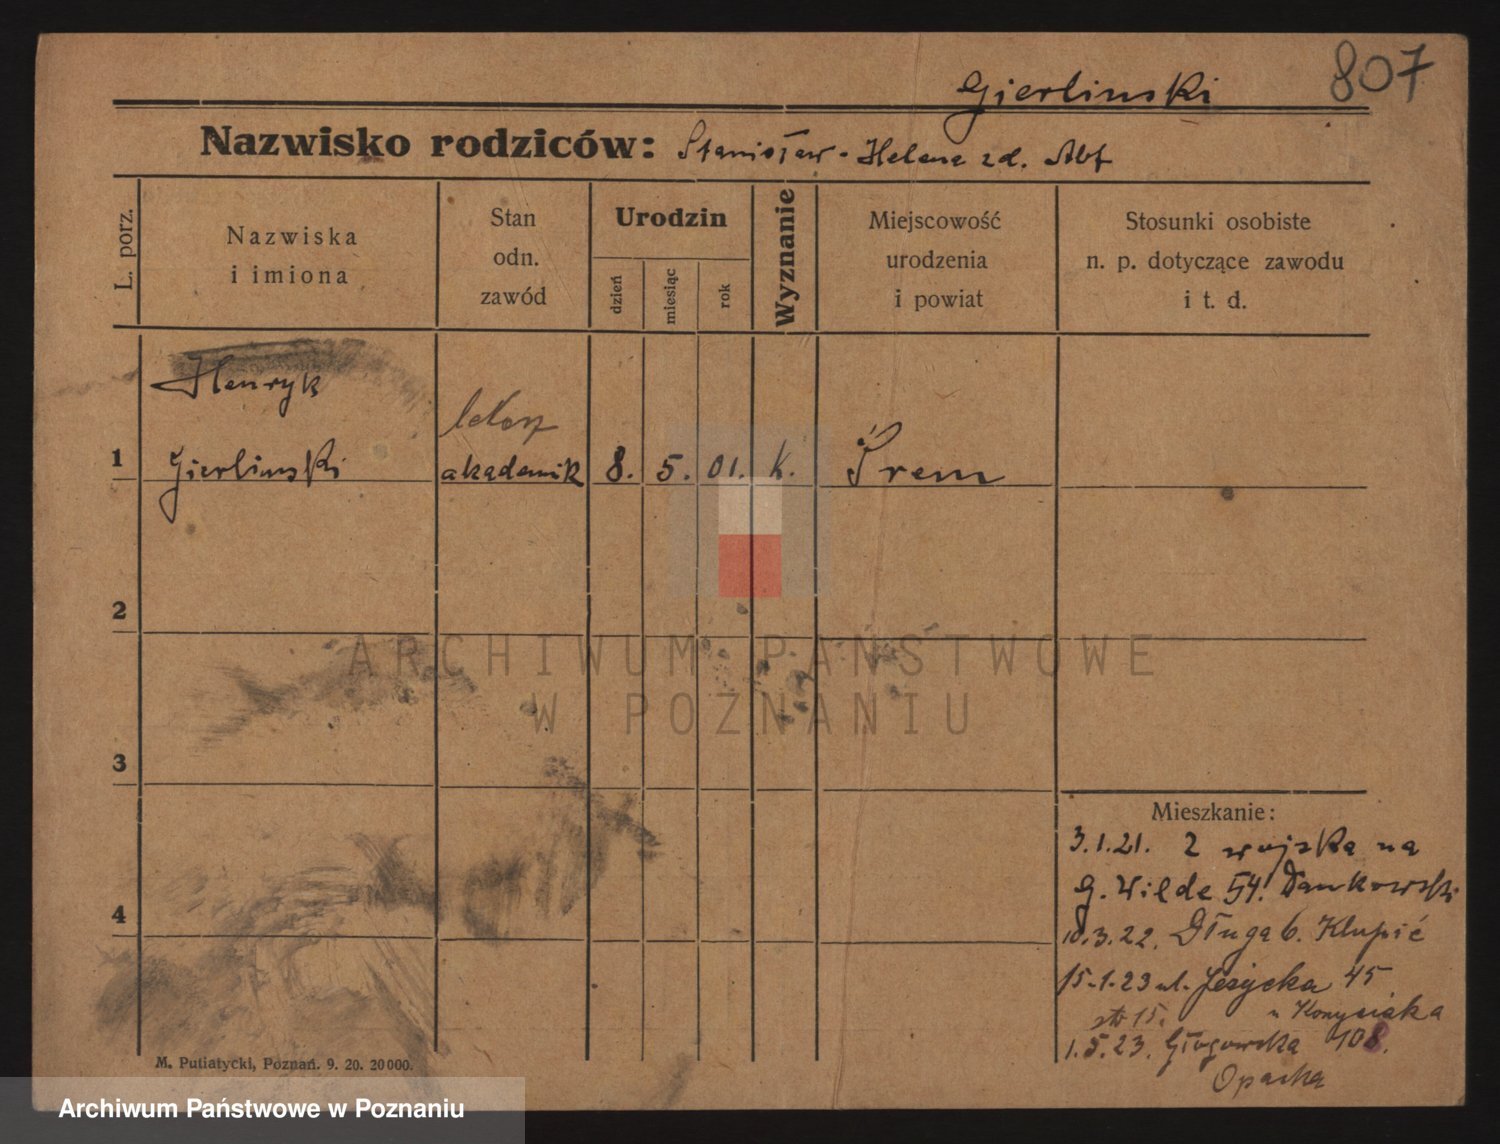 807
Gierlinski
Nazwisko rodziców: Stanisław - Helena zd. Abt
L. porz.
Nazwiska
i imiona
Stan
odn.
zawód
Urodzin
dzień
miesiąc
rok
Wyznanie
Miejscowość
urodzenia
i powiat
Stosunki osobiste
n. p. dotyczące zawodu
i t. d.
Henryk
1 Gierlinski akademik 8. 5. 01. k. Śrem
2
ARCHIWUM PAŃSTWOWE
W POZNANIU
3
4
Mieszkanie:
3.1.21. z wojska na
G. Wilde 54. Dankowski
10.3.22. Długa 6. Klupić
15.1.23 ul. Jeżycka 45
15. u Konysiaka
1.5.23. Głogowska 108.
Opaska
M. Putiatycki, Poznań. 9. 20. 20000.
Archiwum Państwowe w Poznaniu